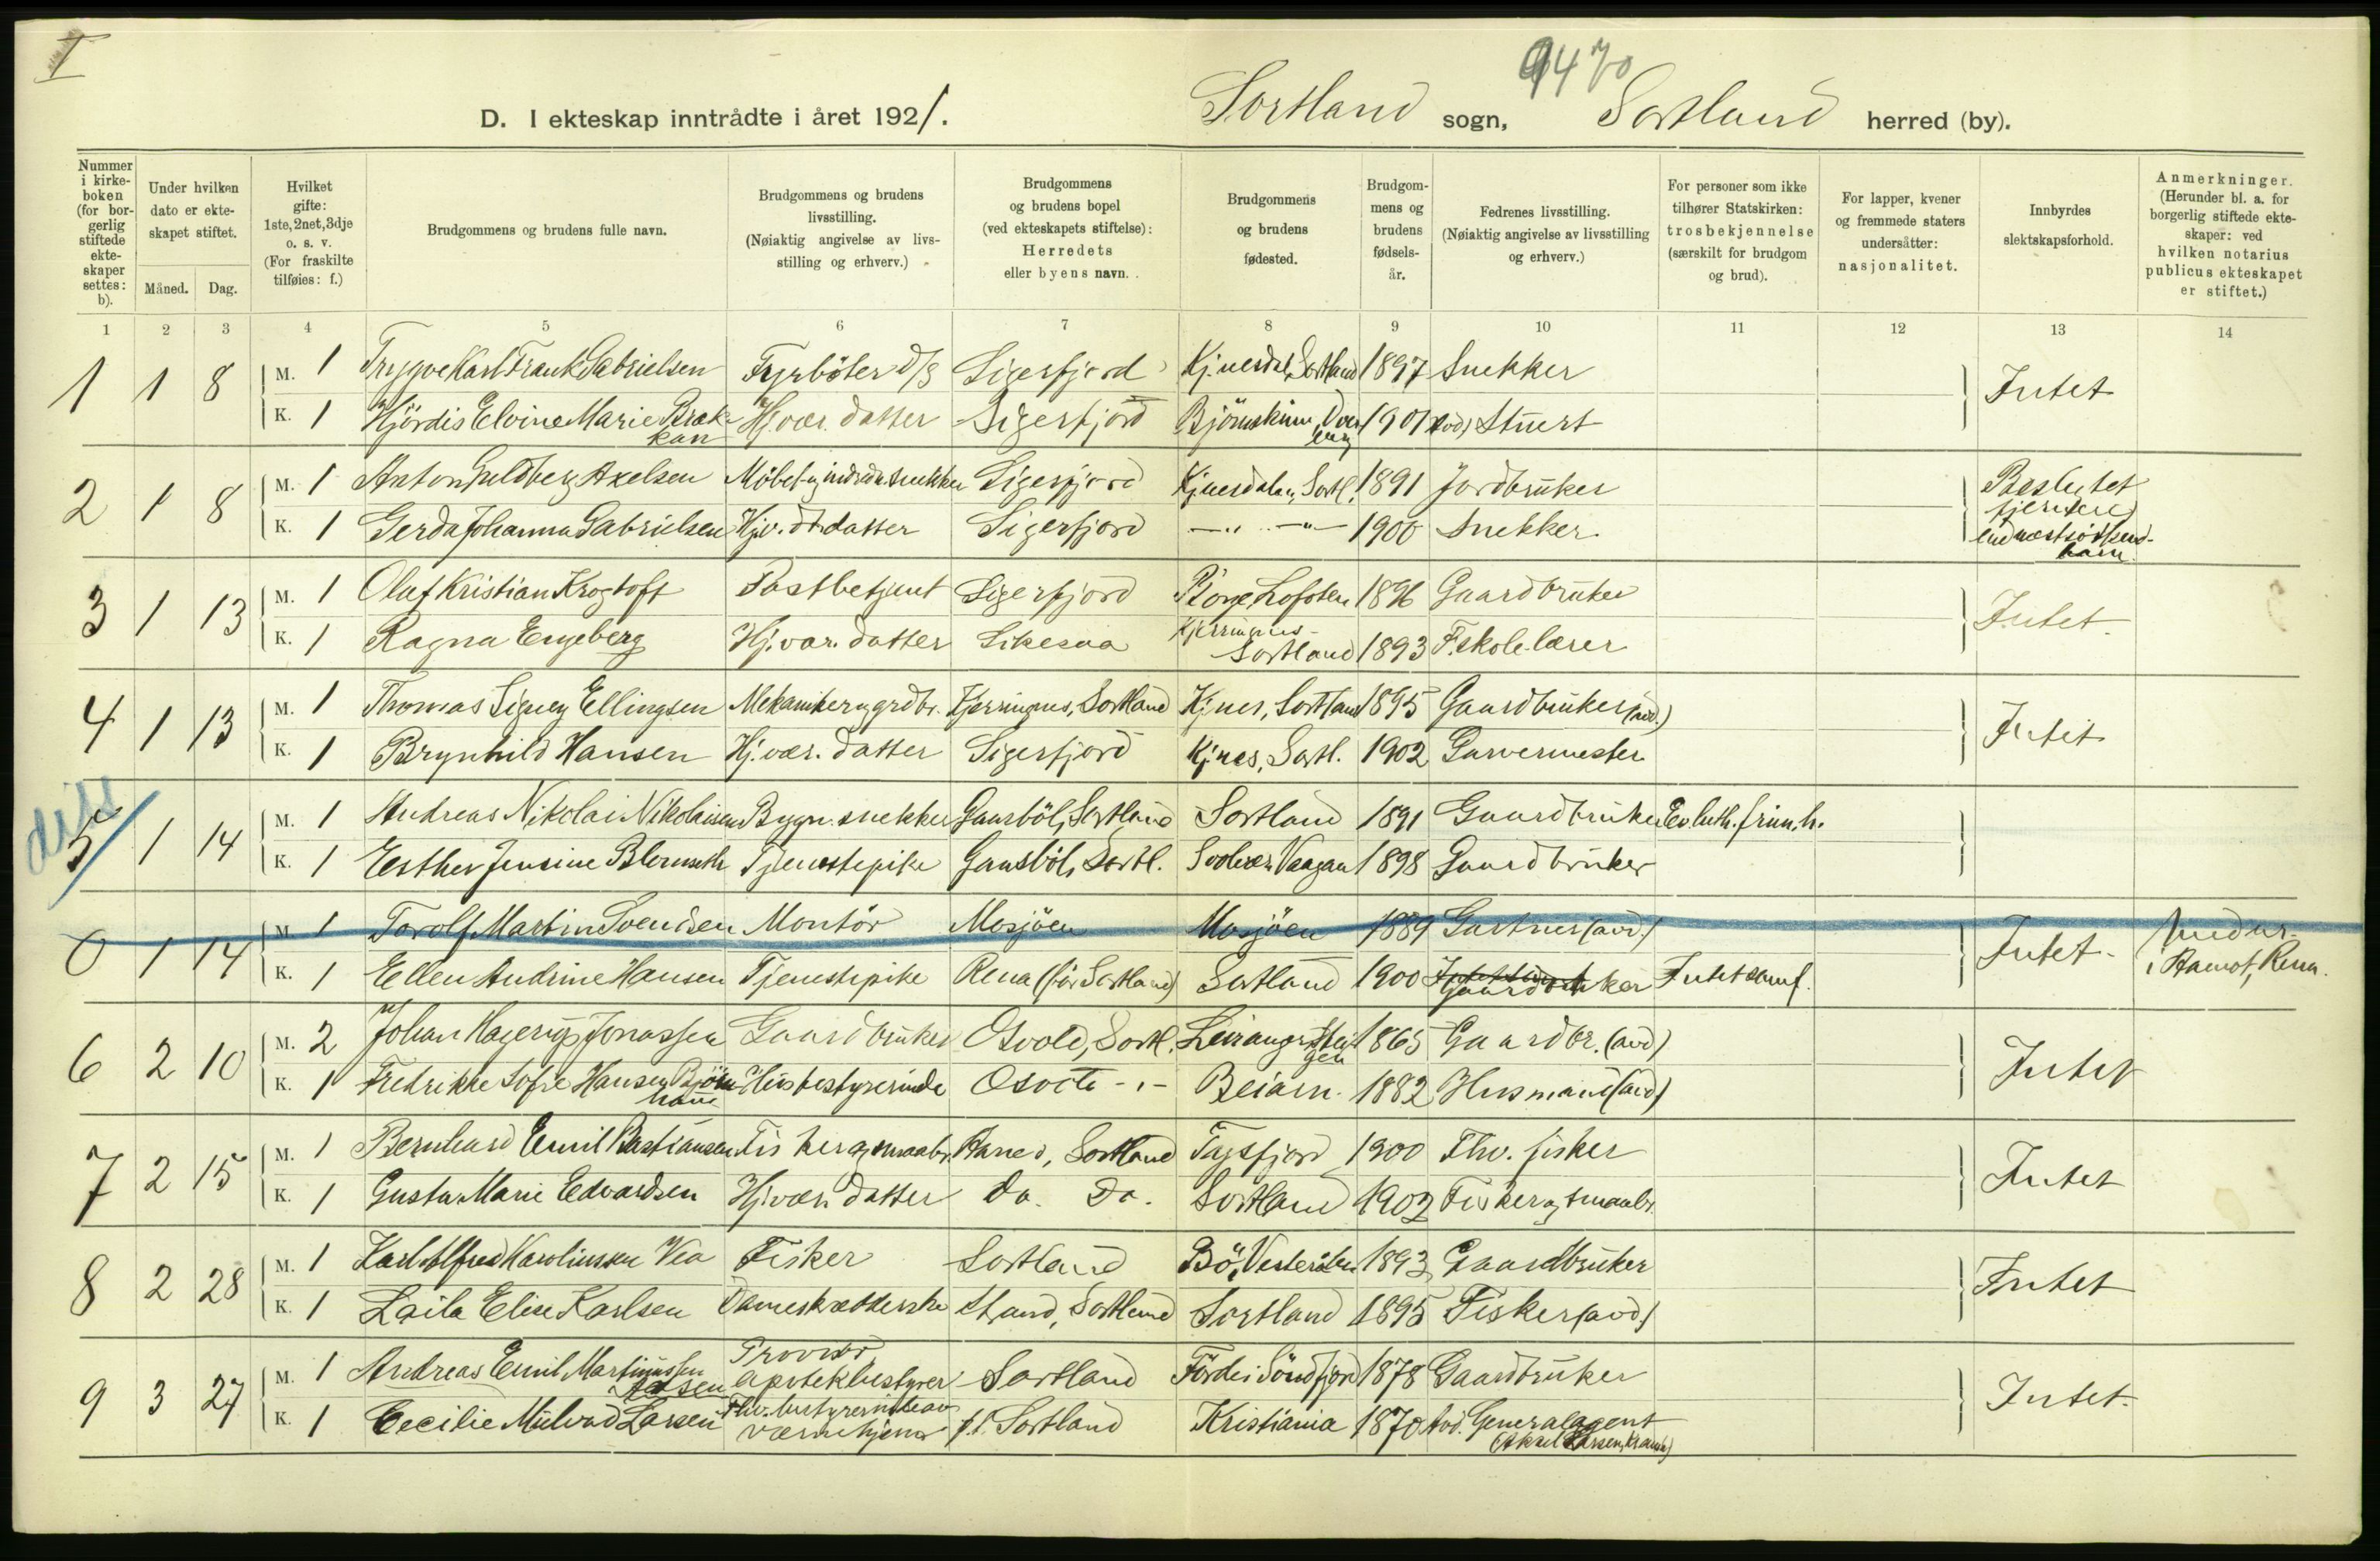 I
9470
D. I ekteskap inntrådte i året 1921. Sortland sogn, Sortland herred (by).
Nummer i kirke-boken (for bor-gerlig stiftede ekte-skaper settes: b).
Under hvilken dato er ekte-skapet stiftet.
Måned. Dag.
Hvilket gifte: 1ste, 2net, 3dje o. s. v. (For fraskilte tilføies: f.)
Brudgommens og brudens fulle navn.
Brudgommens og brudens livsstilling. (Nøiaktig angivelse av livs-stilling og erhverv.)
Brudgommens og brudens bopel (ved ekteskapets stiftelse): Herredets eller byens navn.
Brudgommens og brudens fødested.
Brudgom-mens og brudens fødsels-år.
Fedrenes livsstilling. (Nøiaktig angivelse av livsstilling og erhverv.)
For personer som ikke tilhører Statskirken: trosbekjennelse (særskilt for brudgom og brud).
For lapper, kvener og fremmede staters undersåtter: nasjonalitet.
Innbyrdes slektskapsforhold.
Anmerkninger. (Herunder bl. a. for borgerlig stiftede ekte-skaper: ved hvilken notarius publicus ekteskapet er stiftet.)
1 2 3 4 5 6 7 8 9 10 11 12 13 14
1 1 8 M. 1 Trygve Karl Frank Gabrielsen Fyrböter d/s Sigerfjord Kjnesdal, Sortland 1897 Snekker Intet
K. 1 Hjördis Elvine Marie Brækkan Hj.vær. datter Sigerfjord Björnskinn, Dverberg 1901 Stuert
2 1 8 M. 1 Anton Guldberg Axelsen Möbel og indredn. snekker Sigerfjord Kjnesdalen, Sortl. 1891 Jordbruker Beslegtet fjernere end næstsödskend-barn.
K. 1 Gerda Johanna Gabrielsen Hj.v. datter Sigerfjord —"— —"— 1900 Snekker.
3 1 13 M. 1 Olaf Kristian Krogtoft Postbetjent Sigerfjord Lofoten 1896 Gaardbruker Intet.
K. 1 Ragna Engeberg Hj.vær. datter Likesaa Kjerringnes Sortland 1893 F.skolelærer
4 1 13 M. 1 Thomas Signey Ellingsen Mekaniker og grdbr. Kjerringnes, Sortland Kjnes, Sortland 1895 Gaardbruker (avd.) Intet
K. 1 Brynhild Hansen Hj.vær. datter Sigerfjord Kjnes, Sortl. 1902 Garvermester
5 1 14 M. 1 Andreas Nikolai Nikolaisen Bygn. snekker Gaasböl, Sortland Sortland 1891 Gaardbruker Ev. luth. frim.h.
K. 1 Esther Jensine Tjenestepike Gaasböl, Sortl. Svolvær, Vaagan 1898 Gaardbruker
0 1 14 M. 1 Torolf Martin Svendsen Montör Mosjöen Mosjöen 1889 Gartner (avd.) Intet.
K. 1 Ellen Andrine Hansen Tjenestepike Rena (för Sortland) Sortland 1900 Gaardbruker Intet samf. i Aamot, Rena.
6 2 10 M. 2 Johan Hagerup Jonassen Gaardbruker Osvold, Sortl. Leiranger, Steigen 1865 Gaardbr. (avd) Intet
K. 1 Fredrikke Sofie Hansen Björnhaug Husbestyrerinde Osvold -"- Beiarn. 1882 Husmand (avd)
7 2 15 M. 1 Bernhard Emil Bastiansen Fisker og smaabr. Aanes, Sortland Fagsfjord 1900 Fhv. fisker Intet
K. 1 Gusta Marie Edvardsen Hj.vær. datter Do. Do. Sortland 1902 Fisker og smaabr.
8 2 28 M. 1 Karl Alfred Karolinssen Vea Fisker Sortland Bö, Vesterålen 1893 Gaardbruker Intet
K. 1 Laila Elise Karlsen Dameskrædderske Strand, Sortland Sortland 1895 Fisker (avd)
9 3 27 M. 1 Andreas Emil Martinussen Provisor, apotekbestyrer Sortland Förde i Söndfjord 1878 Gaardbruker Intet.
K. 1 Cecilie Mulvad Larsen Fhv. bestyrerinde av værnehjem p.t. Sortland Kristiania 1870 Avd. Generalagent (Aksel Larsen, Krania)